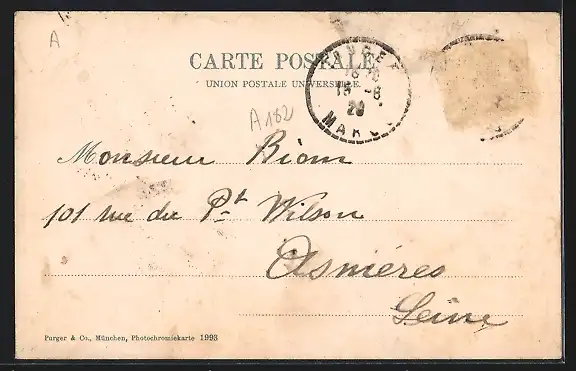 A
CARTE POSTALE
UNION POSTALE UNIVERSELLE.
A182
TANGER
MAROC
Monsieur Biom
101 rue du Pt Wilson
Asnières
Seine
Purger & Co., München, Photochromiekarte 1993